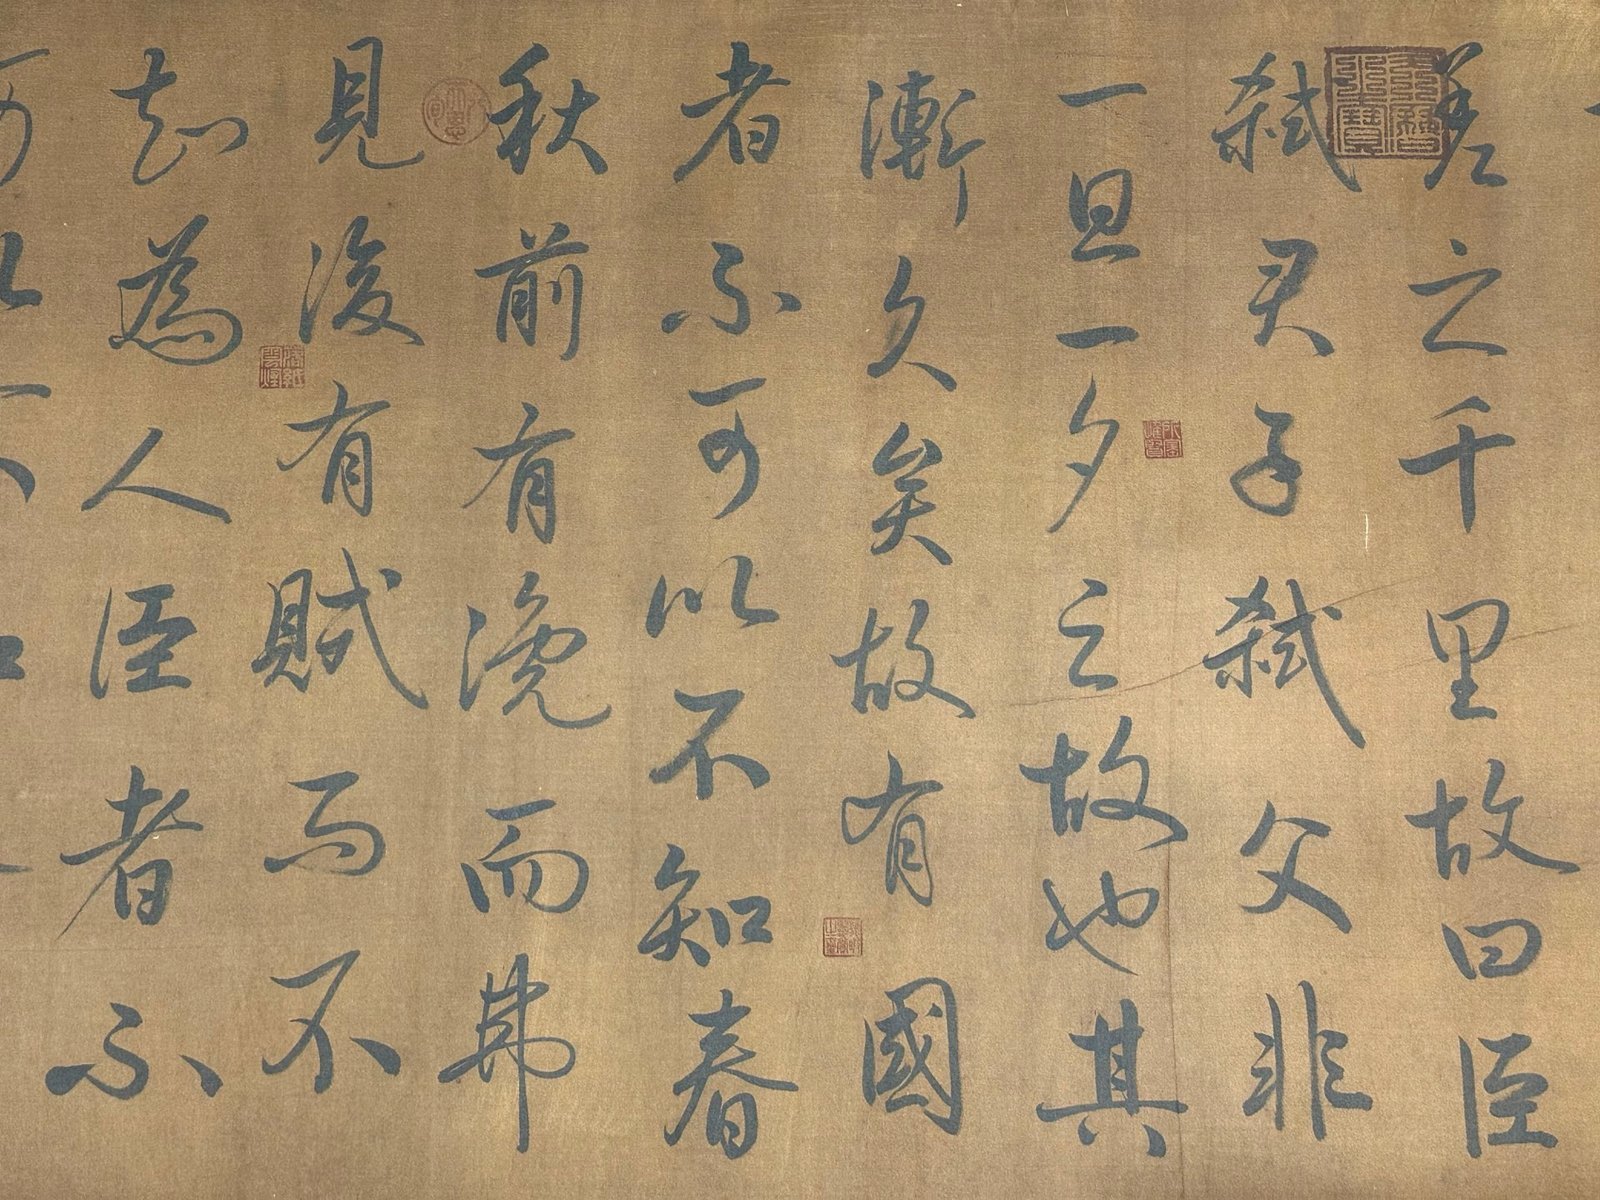 差之千里故曰臣
弒君子弒父非
一旦一夕之故也其
漸久矣故有國
者不可以不知春
秋前有讒而弗
見後有賊而不
知為人臣者不